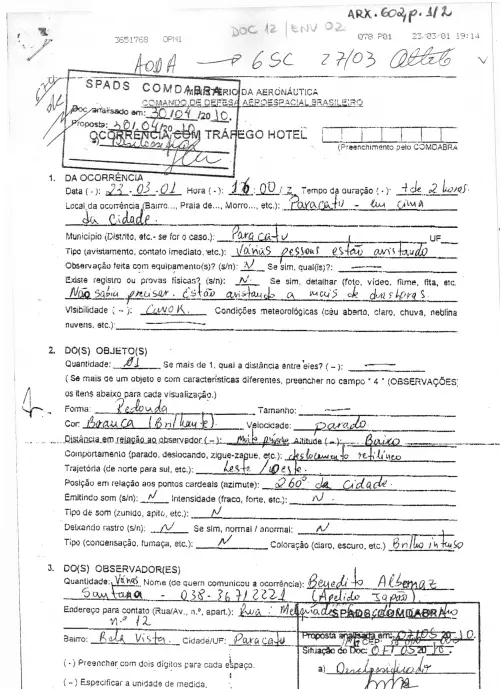 ARX.602, p. 1/2
DOC 12 / ENV 02
3651768 OPM1 078 P01 23/03/01 19:14
AODA → GSC 27/03
SPADS COMDABRA
MINISTÉRIO DA AERONÁUTICA
COMANDO DE DEFESA AEROESPACIAL BRASILEIRO
Doc. analisado em: 30/04/2010.
Proposta:
OCORRÊNCIA COM TRÁFEGO HOTEL
(Preenchimento pelo COMDABRA
1. DA OCORRÊNCIA
Data (-): 23-03-01 Hora (-): 16:00/Z Tempo da duração (-): + de 2 horas.
Local da ocorrência (Bairro..., Praia de..., Morro..., etc.): Paracatu - em cima
da cidade.
Município (Distrito, etc.- se for o caso.): Paracatu UF
Tipo (avistamento, contato imediato, etc.): Várias pessoas estão avistando
Observação feita com equipamento(s)? (s/n): N Se sim, qual(is)?:
Existe registro ou provas físicas? (s/n): N Se sim, detalhar (foto, vídeo, filme, fita, etc.
Não sabia precisar. Estão avistando a mais de duas horas.
Visibilidade (-): CAVOK. Condições meteorológicas (céu aberto, claro, chuva, neblina
nuvens, etc.):
2. DO(S) OBJETO(S)
Quantidade: 01 Se mais de 1, qual a distância entre eles? (-):
(Se mais de um objeto e com características diferentes, preencher no campo "4" (OBSERVAÇÕES)
os itens abaixo para cada visualização.)
Forma: Redonda Tamanho:
Cor: Branca (Brilhante) Velocidade: parado
Distância em relação ao observador (-): Altitude (-): Baixo
Comportamento (parado, deslocando, zigue-zague, etc.): deslocamento retilíneo
Trajetória (de norte para sul, etc.): Leste / Oeste.
Posição em relação aos pontos cardeais (azimute): 260° da Cidade.
Emitindo som (s/n): N Intensidade (fraco, forte, etc.): N.
Tipo de som (zunido, apito, etc.): N
Deixando rastro (s/n): N Se sim, normal / anormal: N
Tipo (condensação, fumaça, etc.): N Coloração (claro, escuro, etc.) Brilho intenso
3. DO(S) OBSERVADOR(ES)
Quantidade: Várias Nome (de quem comunicou a ocorrência): Benedito Albernaz
Santana - 038-36712221 (Apelido Japão).
Endereço para contato (Rua/Av., n.°, apart.): Rua:
n.° 12
SPADS COMDABRA
Bairro: Bela Vista. Cidade/UF: Paracatu
Proposta analisada em: 07/05/2010.
Situação do Doc:
(-) Preencher com dois dígitos para cada espaço.
a)
(-) Especificar a unidade de medida.